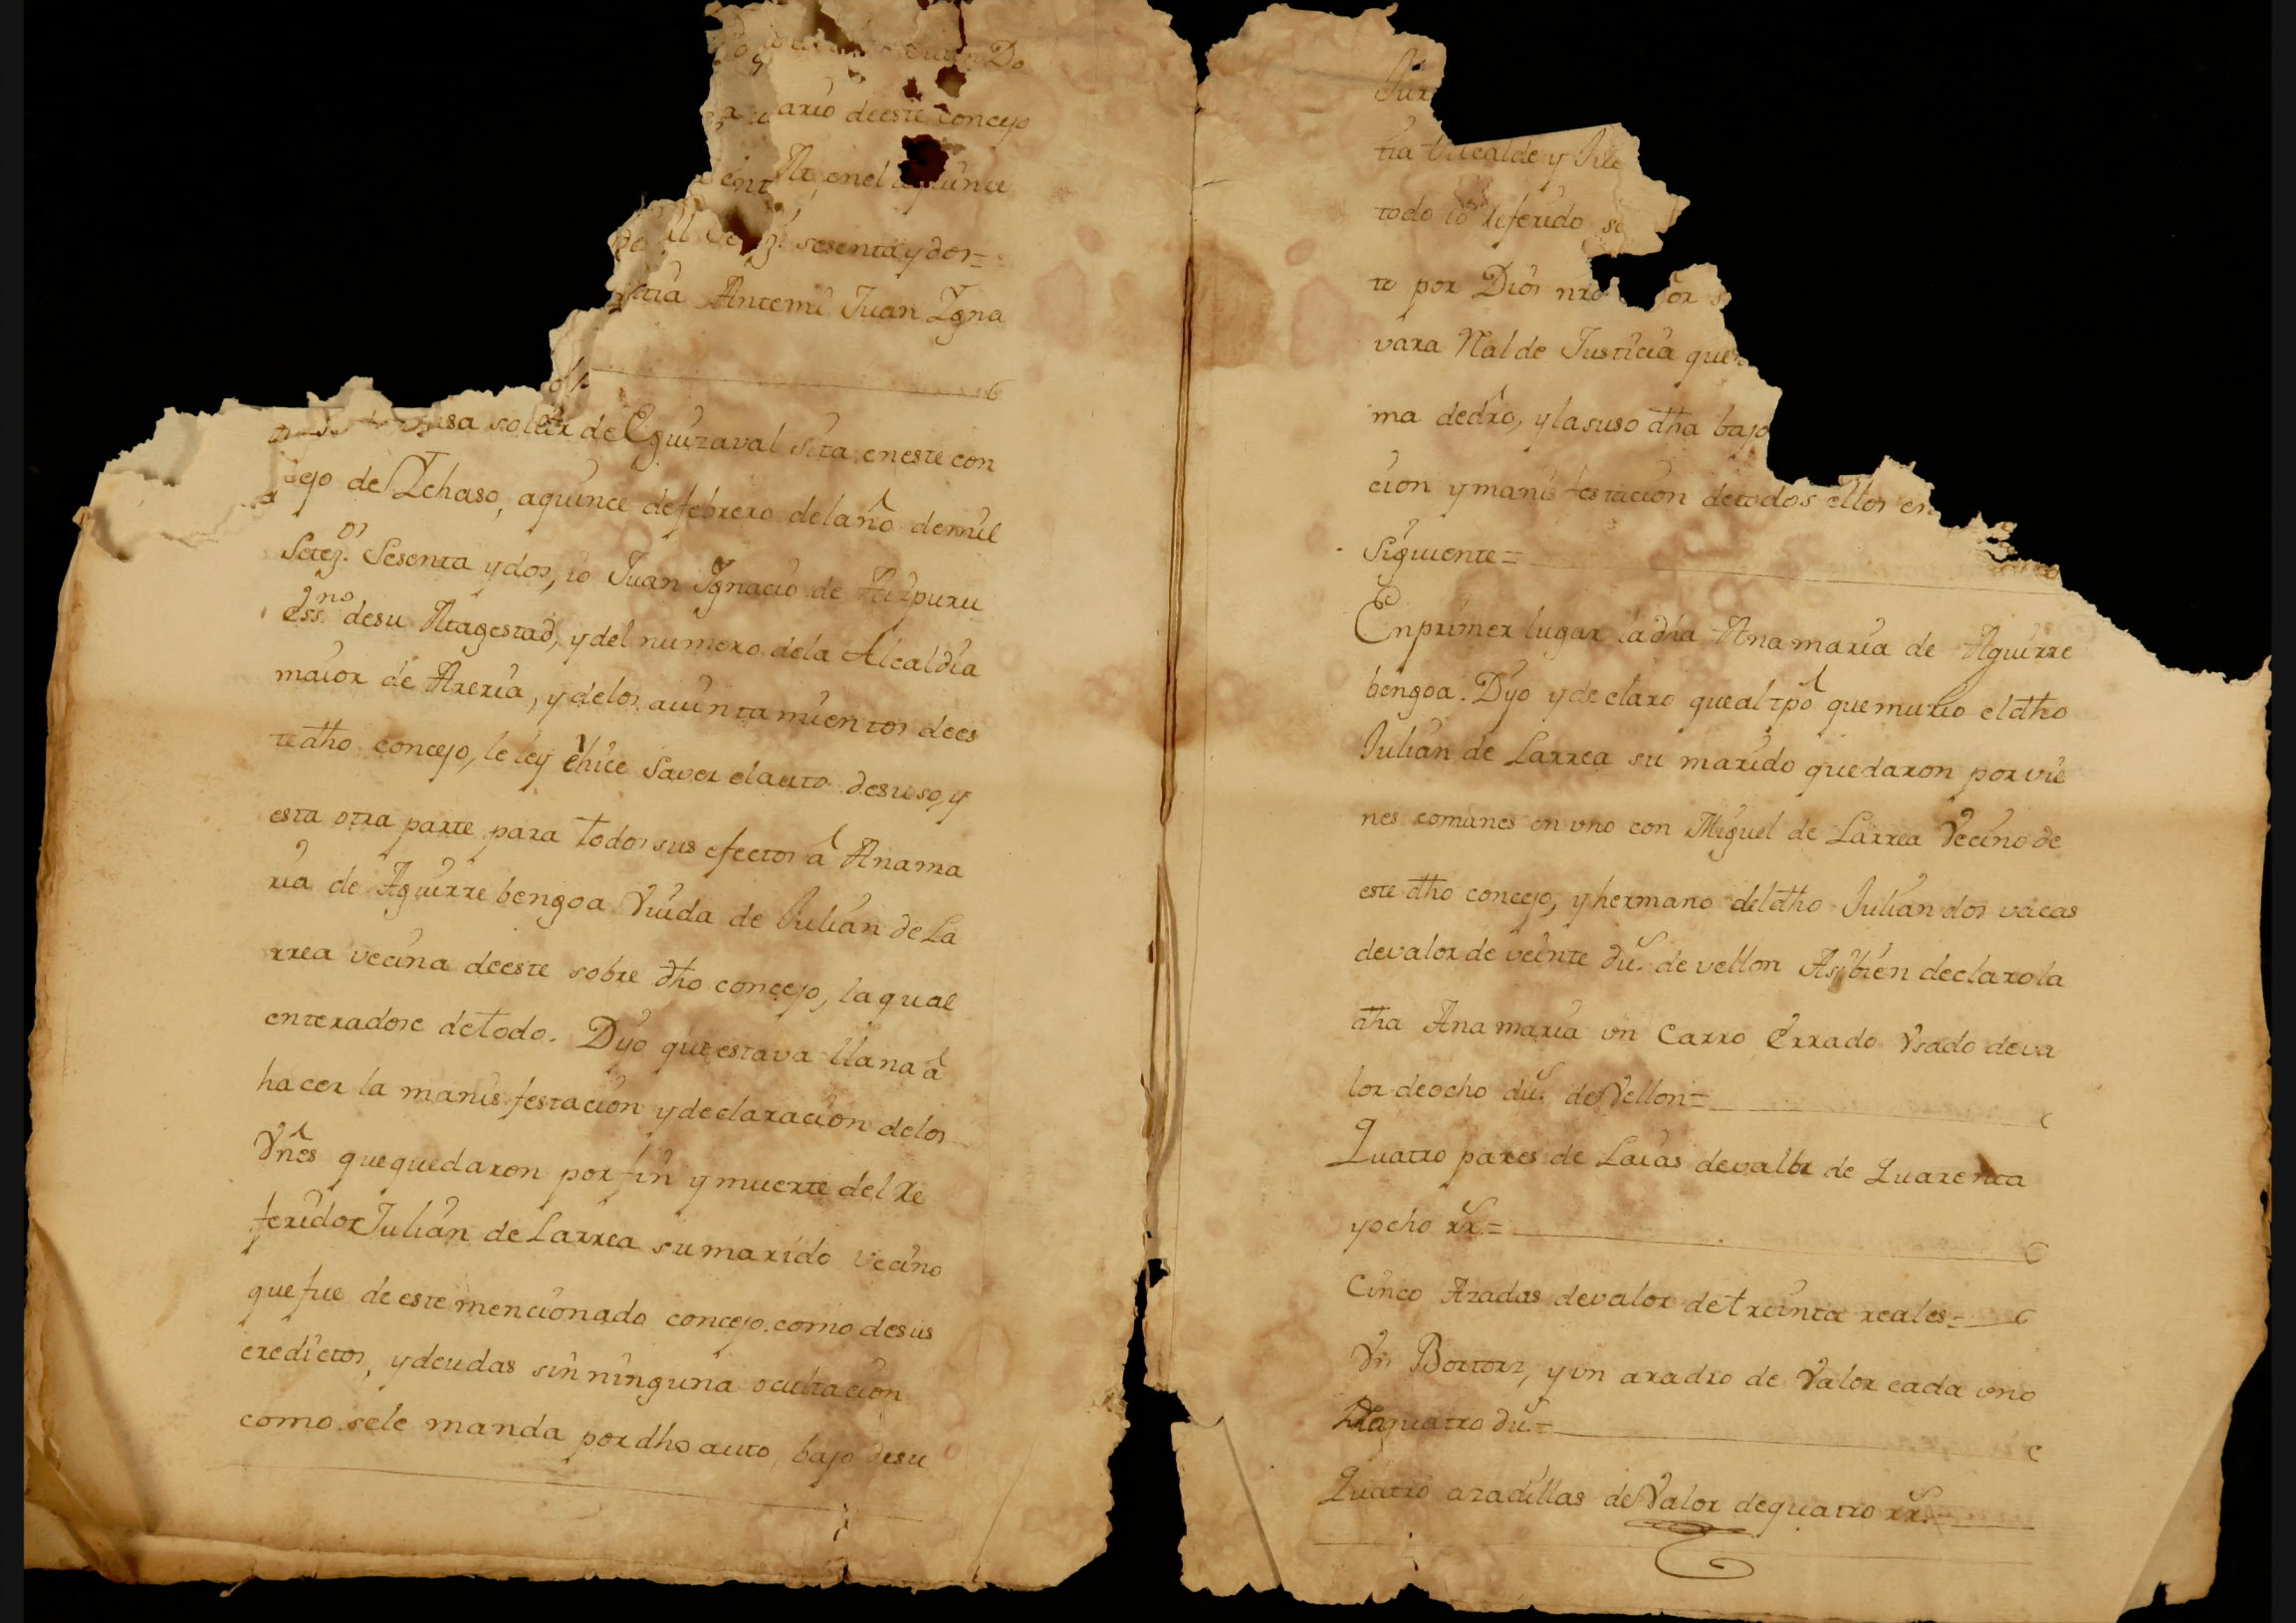 Juan Do
ario deeste concejo
enel
sesenta y dos=
Antemi Juan Igna
casa solar de Eguizaval sita eneste con
cejo de Ichaso, aquince defebrero delaño demil
Setez.os Sesenta ydos, io Juan Ignacio de Aizpuru
ess.no desu Magestad, ydel numero dela Alcaldia
maior de Areria, ydelos aiuntamientos dees
tedho concejo, leley ehice Saver elauto desuso, y
esta otra parte para todos sus efectos â Anama
ria de Aguirre bengoa Viuda de Julian de La
rrea vecina deeste sobre dho concejo, laqual
enteradose detodo. Dijo queestava llana â
hacer la manisfestacion ydeclaracion delos
Vnes quequedaron por fin y muerte del Re
ferido Julian de Larrea sumarido vecino
quefue deeste mencionado concejo. como desus
eredictos, ydeudas sin ninguna ocultacion
como sele manda pordho auto, bajo desu
Jur
tia Alcalde y
todo lo Referido
te por Dios nro
vara Rl de Justicia que
ma dedro, ylasuso dha bajo
cion ymanisfestacion detodos ellos en
Siguiente=
Enprimer lugar ladha Anamaria de Aguirre
bengoa. Dijo ydeclaro queal tpô quemurio eldho
Julian de Larrea su marido quedaron por vie
nes comunes en vno con Miguel de Larrea Vecino de
este dho concejo, yhermano deldho Julian dos vacas
devalor de veinte du.s de vellon Asibien declarola
dha Anamaria vn Carro Errado Vsado deva
lor deocho du.s de Vellon=
Quatro pares de Laias devalor de Quarenta
yocho rr.s=
Cinco Azadas devalor detreinta reales=
Vn Bostorz, yvn aradro de Valor cada vno
dequatro du.s=
Quatro azadillas de Valor dequatro rr.s=